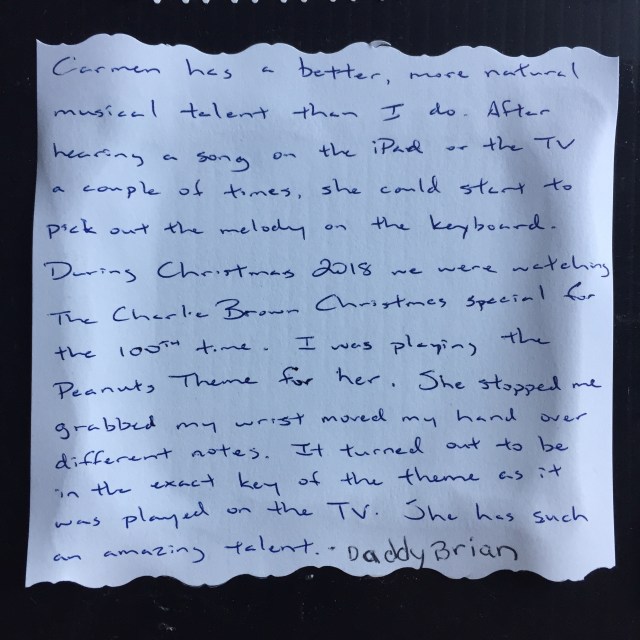 Carmen has a better, more natural
musical talent than I do. After
hearing a song on the iPad or the TV
a couple of times, she could start to
pick out the melody on the keyboard.
During Christmas 2018 we were watching
The Charlie Brown Christmas special for
the 100TH time. I was playing the
Peanuts Theme for her. She stopped me
grabbed my wrist moved my hand over
different notes. It turned out to be
in the exact key of the theme as it
was played on the TV. She has such
an amazing talent. - Daddy Brian